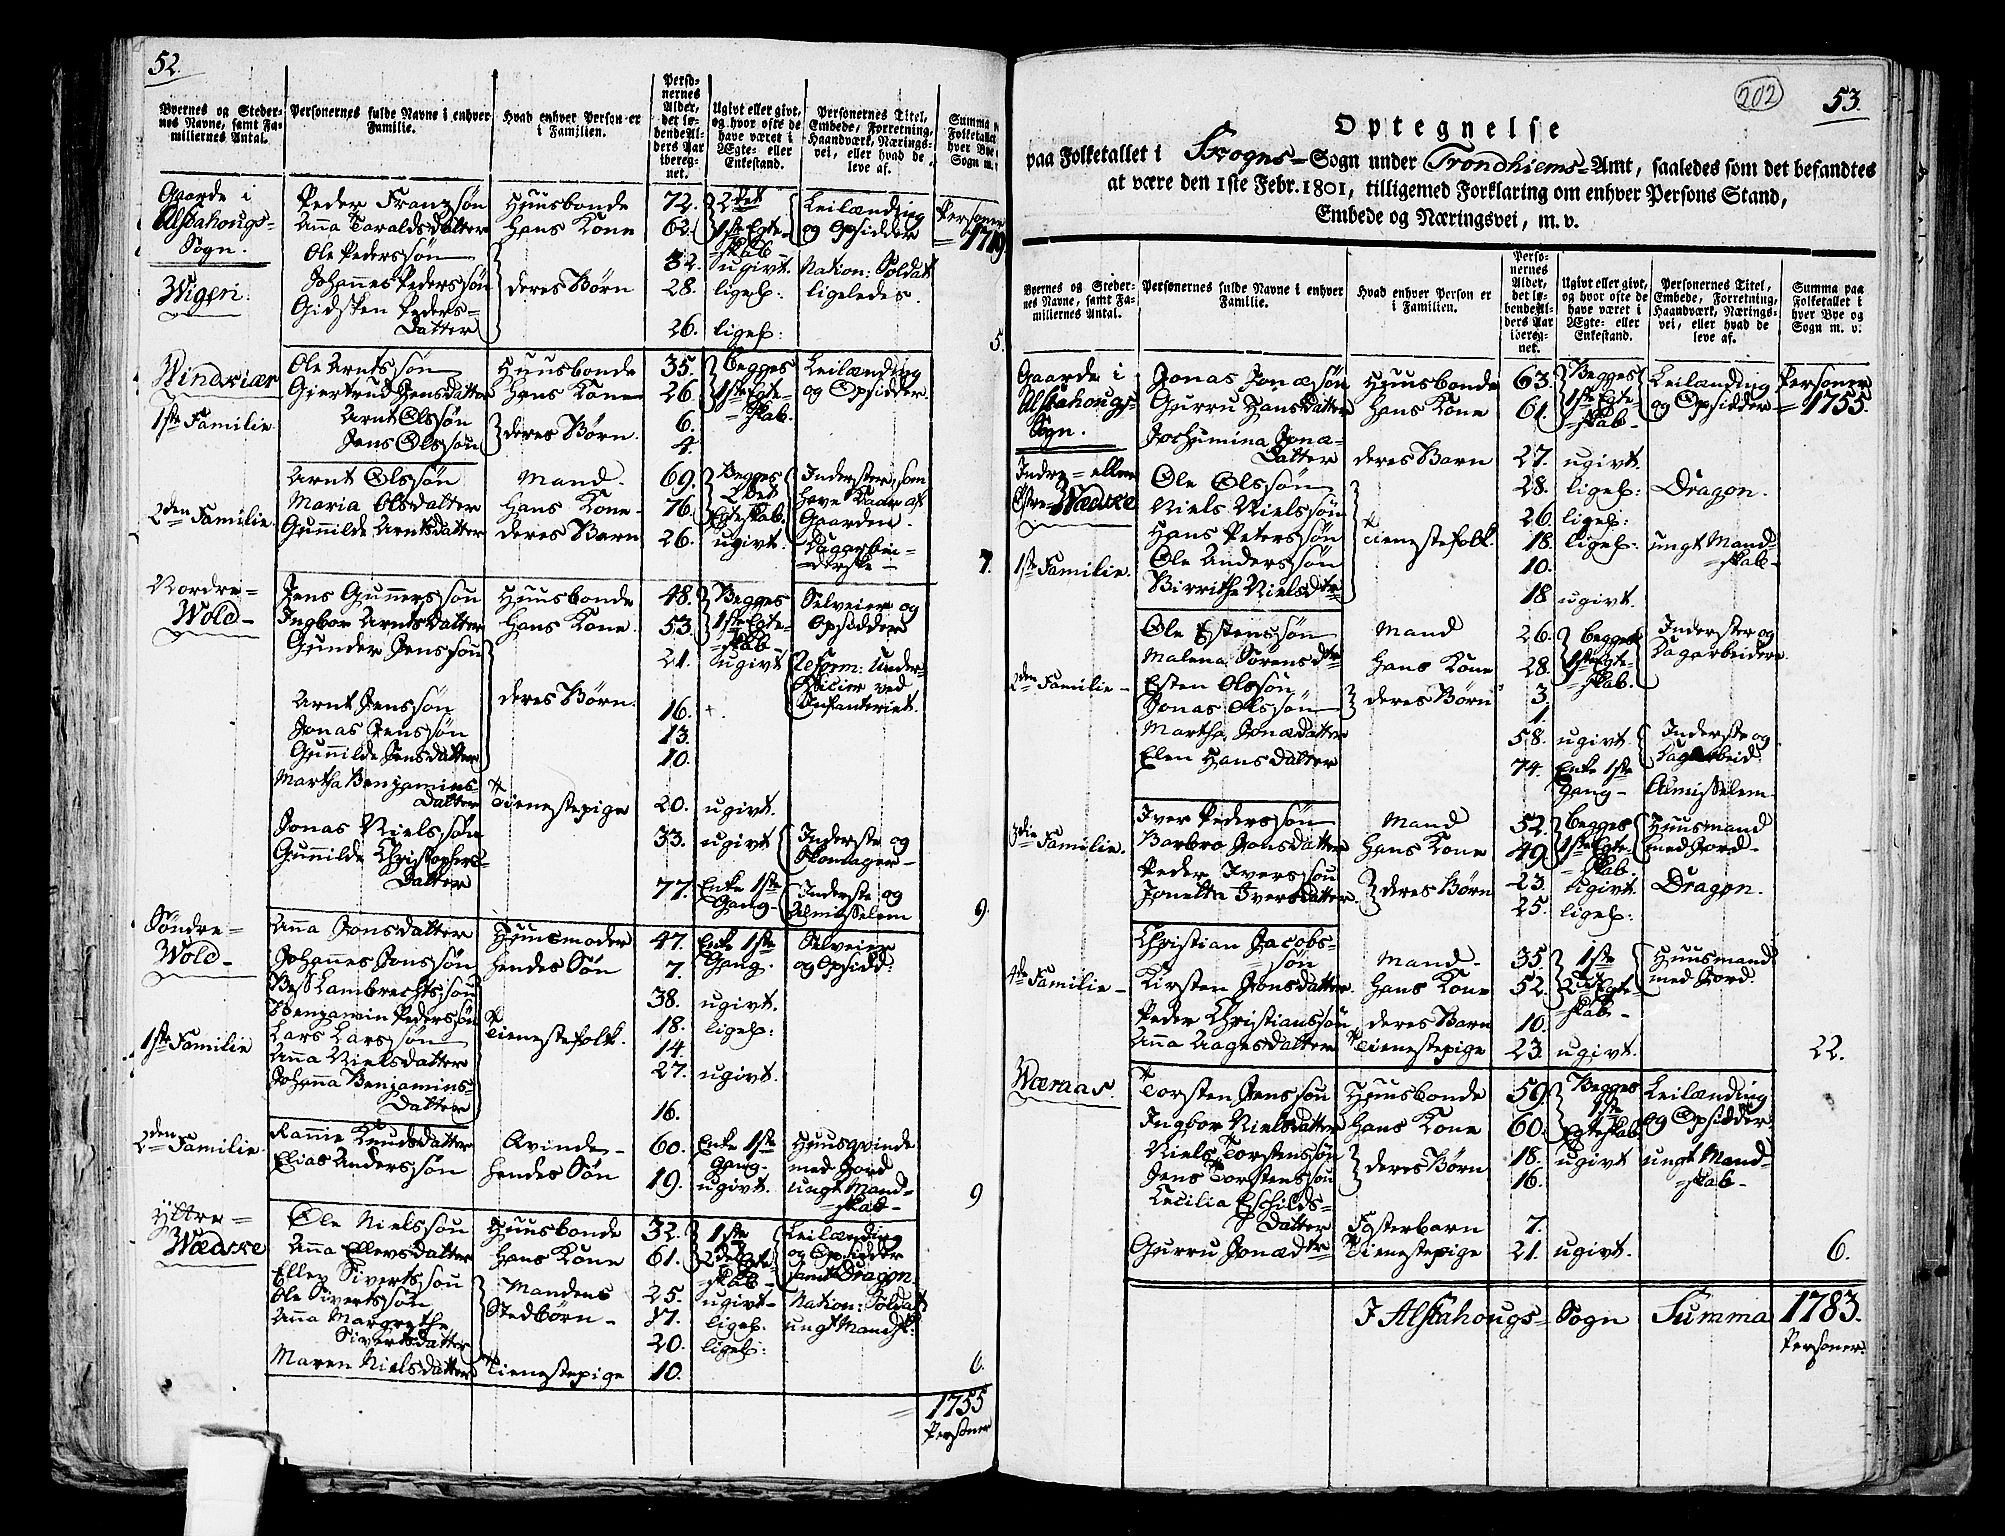 52.
Byernes og Steder-
nes Navne, samt Fa-
miliernes Antal.
Personernes fulde Navne i enhver
Familie.
Hvad enhver Person er
i Familien.
Perso-
nernes
Alder,
det lø-
bende Al-
ders Aar
iberegn-
net.
Ugivt eller givt,
og hvor ofte de
have været i
Ægte- eller
Enkestand.
Personernes Titel,
Embede, Forretning,
Haandværk, Nærings-
vei, eller hvad de
leve af.
Summa
Folketallet
hver Bye
Sogn m.
Gaarde i
Alstahougs-
Sogn.
Peder Franzsøn Huusbonde 72. 2det Leilænding Personer
Anna Taraldsdatter Hans Kone 62. 1ste Egte-skab og Opsidder = 1719
Ole Pederssøn 32. ugivt. Nation: Soldat
Wigen: Johannes Pederssøn deres Børn 28. ligel: ligeledes.
Gidsken Peders-
Datter 26. ligel: 5.
Windsiær Ole Arntssøn Huusbonde 35. Begges Leilænding
Giertrud Jensdatter Hans Kone 26. 1ste Egte-skab. og Opsidder
1ste Familie Arnt Olssøn deres Børn. 6.
Jens Olssøn 4.
Arnt Olssøn Mand. 69. Begges Inderster, som
2den Familie. Maria Olsdatter Hans Kone 76. 2det Egteskab. have Kaar af Gaarden.
Gunnilde Arntsdatter deres Barn 26. ugivt. Dagarbei-
derske 7.
Nordre=
Wold- Jens Gunnerssøn Huusbonde 48. Begges Selveier og
Ingbor Arntsdatter Hans Kone. 53. 1ste Egte-skab Opsidder
Gunder Jenssøn 21. ugivt Reform: Under-
Officier ved
Infanteriet.
Arnt Jenssøn deres Børn. 16.
Jonas Jenssøn 13.
Gunnilde Jensdatter 10.
Martha Benjamins-
Datter Tienestepige 20. ugivt.
Jonas Nielssøn 33. ugivt Inderste og
Skomager-
Gunnilde Christophers-
Datter 77. Enke 1ste Gang- Inderste og
Almisselem 9.
Søndre=
Wold- Anna Jonsdatter Huusmoder 47. Enke 1ste Gang. Selveier
og Opsidd:
Johannes Jonssøn hendes Søn 7.
Lambrechtssøn 38. ugivt.
Benjamin Pederssøn 18. ligel:
1ste Familie Lars Larssøn Tienestefolk. 14.
Anna Nielsdatter 27. ugivt.
Johanna Benjamins-
Datter 16.
2den Familie. Rannie Knudsdatter Qvinde- 60. Enke 1ste Gang- Huusqvinde
med Jord
Elias Anderssøn hendes Søn 19. ugivt. ungt Mand-
skab- 9
Yttre=
Wædske Ole Nielssøn Huusbonde 32. 1ste Leilænding
Anna Ellevsdatter Hans Kone 61. 2det Egte-skab- og Opsidder
samt Dragon.
Ellev Sivertssøn Mandens 25. ugivt- Nation: Soldat
Ole Sivertssøn Stedbørn- 17. ligel: ungt Mandsk:
Anna Margrethe
Sivertsdatter 20. ligel:
Maren Nielsdatter Tienestepige 10. 6.
1755
Personer
202
53.
Optegnelse
paa Folketallet i Skogns=Sogn under Trondhiems-Amt, saaledes som det befandtes
at være den 1ste Febr. 1801, tilligemed Forklaring om enhver Persons Stand,
Embede og Næringsvei, m. v.
Byernes og Steder-
nes Navne, samt Fa-
miliernes Antal.
Personernes fulde Navne i enhver
Familie.
Hvad enhver Person er
i Familien.
Perso-
nernes
Alder,
det lø-
bende Al-
ders Aar
iberegn-
net.
Ugivt eller givt,
og hvor ofte de
have været i
Ægte- eller
Enkestand.
Personernes Titel,
Embede, Forretning,
Haandværk, Nærings-
vei, eller hvad de
leve af.
Summa paa
Folketallet i
hver Bye og
Sogn m. v.
Gaarde i
Alstahougs-
Sogn. Jonas Jonæsøn Huusbonde 63. Begges Leilænding Personer
Gurru Hansdatter Hans Kone 61. 1ste Egte-skab- og Opsidder = 1755.
Jochumina Jonæ-
Datter deres Barn 27. ugivt.
Indre= eller
Østre=Wædske Ole Olssøn 28. ligel: Dragon.
Niels Nielssøn 26. ligel:
Hans Peterssøn Tienestefolk. 18. ligel: ungt Mand-
skab-
1ste Familie. Ole Anderssøn 10.
Birrithe Nielsdtr 18 ugivt.
Ole Estenssøn Mand 26. Begges Inderster og
Malena Sørensdtr Hans Kone 28. 1ste Egte-skab. Dagarbeidere
2den Familie- Esten Olssøn deres Børn 3.
Jonas Olssøn 1.
Martha Jonædatter 58. ugivt. Inderste og
Dagarbeid.
Elen Hansdatter 74. Enke 1ste Gang- Almisselem.
3die Familie. Iver Pederssøn Mand 52. Begges Huusmand
Barbro Jonsdatter Hans Kone 49. 1ste Egte-skab. med Jord-
Peder Iverssøn deres Børn 23. ugivt. Dragon.
Jonetta Iversdatter. 25. ligel:
Christian Jacobs-
søn Mand- 35. 1ste Huusmand
4de Familie- Kirsten Jonsdatter. Hans Kone 52. 2det Egte-skab- med Jord.
Peder Christianssøn deres Barn 10.
Anna Aagesdatter Tienestepige 23. ugivt. 22.
Wæraas. Torsten Jenssøn Huusbonde 59. Begges Leilænding
Ingbor Nielsdatter Hans Kone 60. 1ste Egteskab og Opsidder
Niels Torstenssøn deres Børn 18. ugivt ungt Mand-
skab-
Jens Torstenssøn 16.
Cecilia Eschilds-
Datter Fosterbarn 7.
Gurru Jonædtr Tienestepige 21. ugivt. 6.
I Alstahougs- Sogn Summa 1783.
Personer.